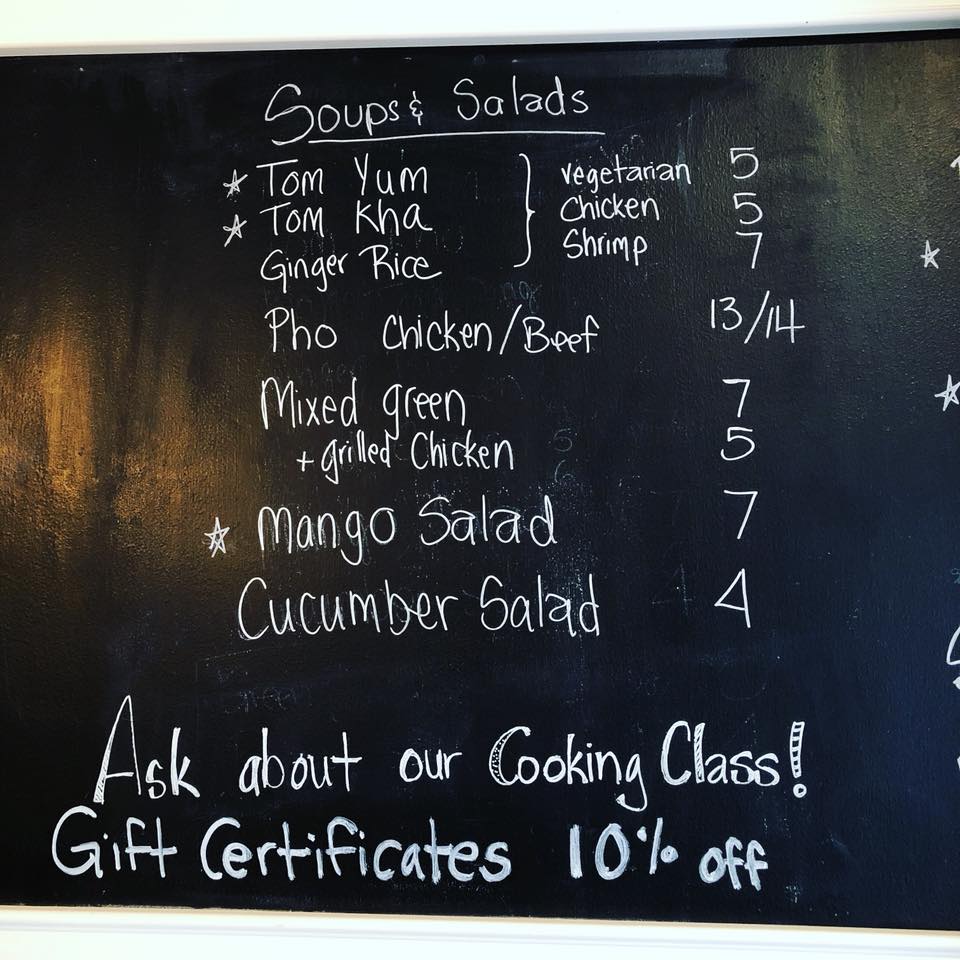 Soups & Salads
☆ Tom Yum } vegetarian 5
☆ Tom Kha Chicken 5
Ginger Rice Shrimp 7
Pho Chicken/Beef 13/14
Mixed green 7
+ grilled Chicken 5
☆ Mango Salad 7
Cucumber Salad 4
Ask about our Cooking Class!
Gift Certificates 10% off